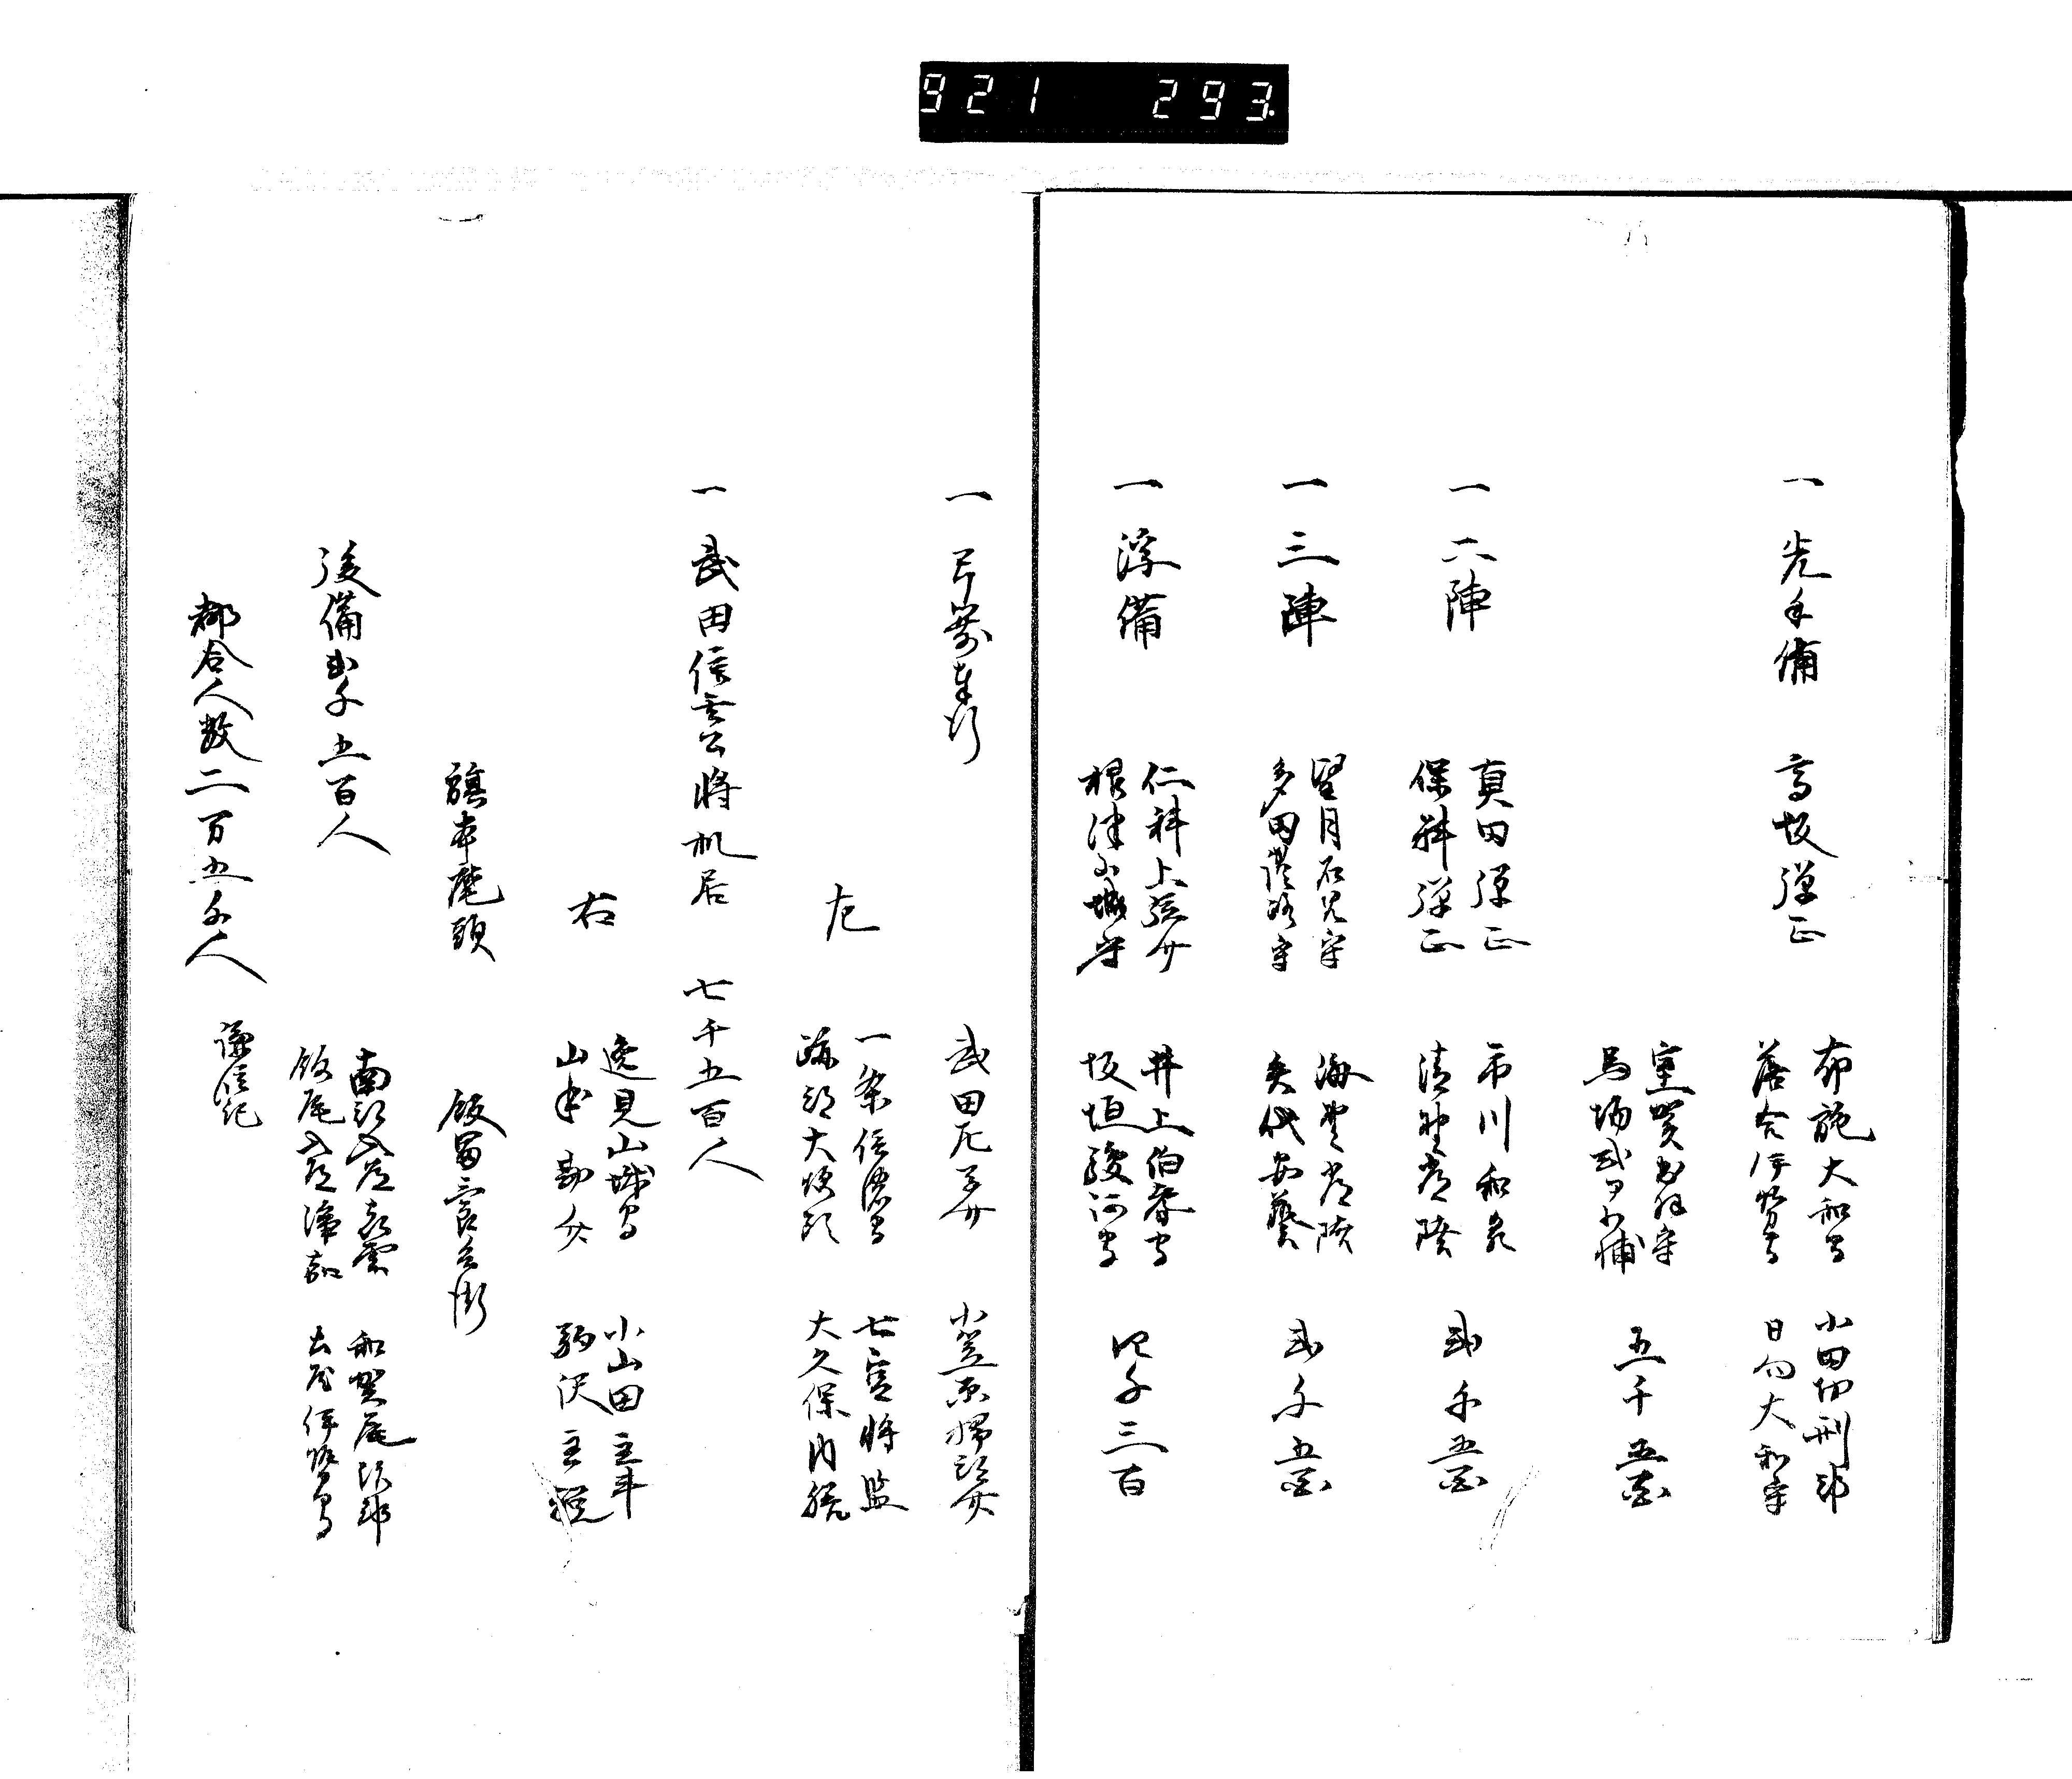 921 293
一 先手備 高坂弾正 布施大和守 小田切刑部
落合伊勢守 日向大和守
室賀出羽守
馬場式部少輔 五千五百
一 二陣 真田弾正 市川和泉 弐千五百
保科弾正 清野常陸
一 三陣 望月石見守 海野常陸 弐千五百
多田淡路守 矢代安藝
一 浮備 仁科上総介 井上伯耆守 四千三百
根津山城守 板垣駿河守
一 弓箭奉行 武田左馬介 小笠原掃部介
左 一条信濃守 七宮将監
跡部大炊頭 大久保内膳
一 武田信玄公将机居 七千五百人
右 逸見山城守 小山田主斗
山本勘介 駒沢主税
旗本麾頭 飯冨三郎兵衛
後備弐千五百人 南部入道喜雲 和賀尾治部
飯尾入道浄賀 土屋伊勢守
都合人数二万五千人 謙信記